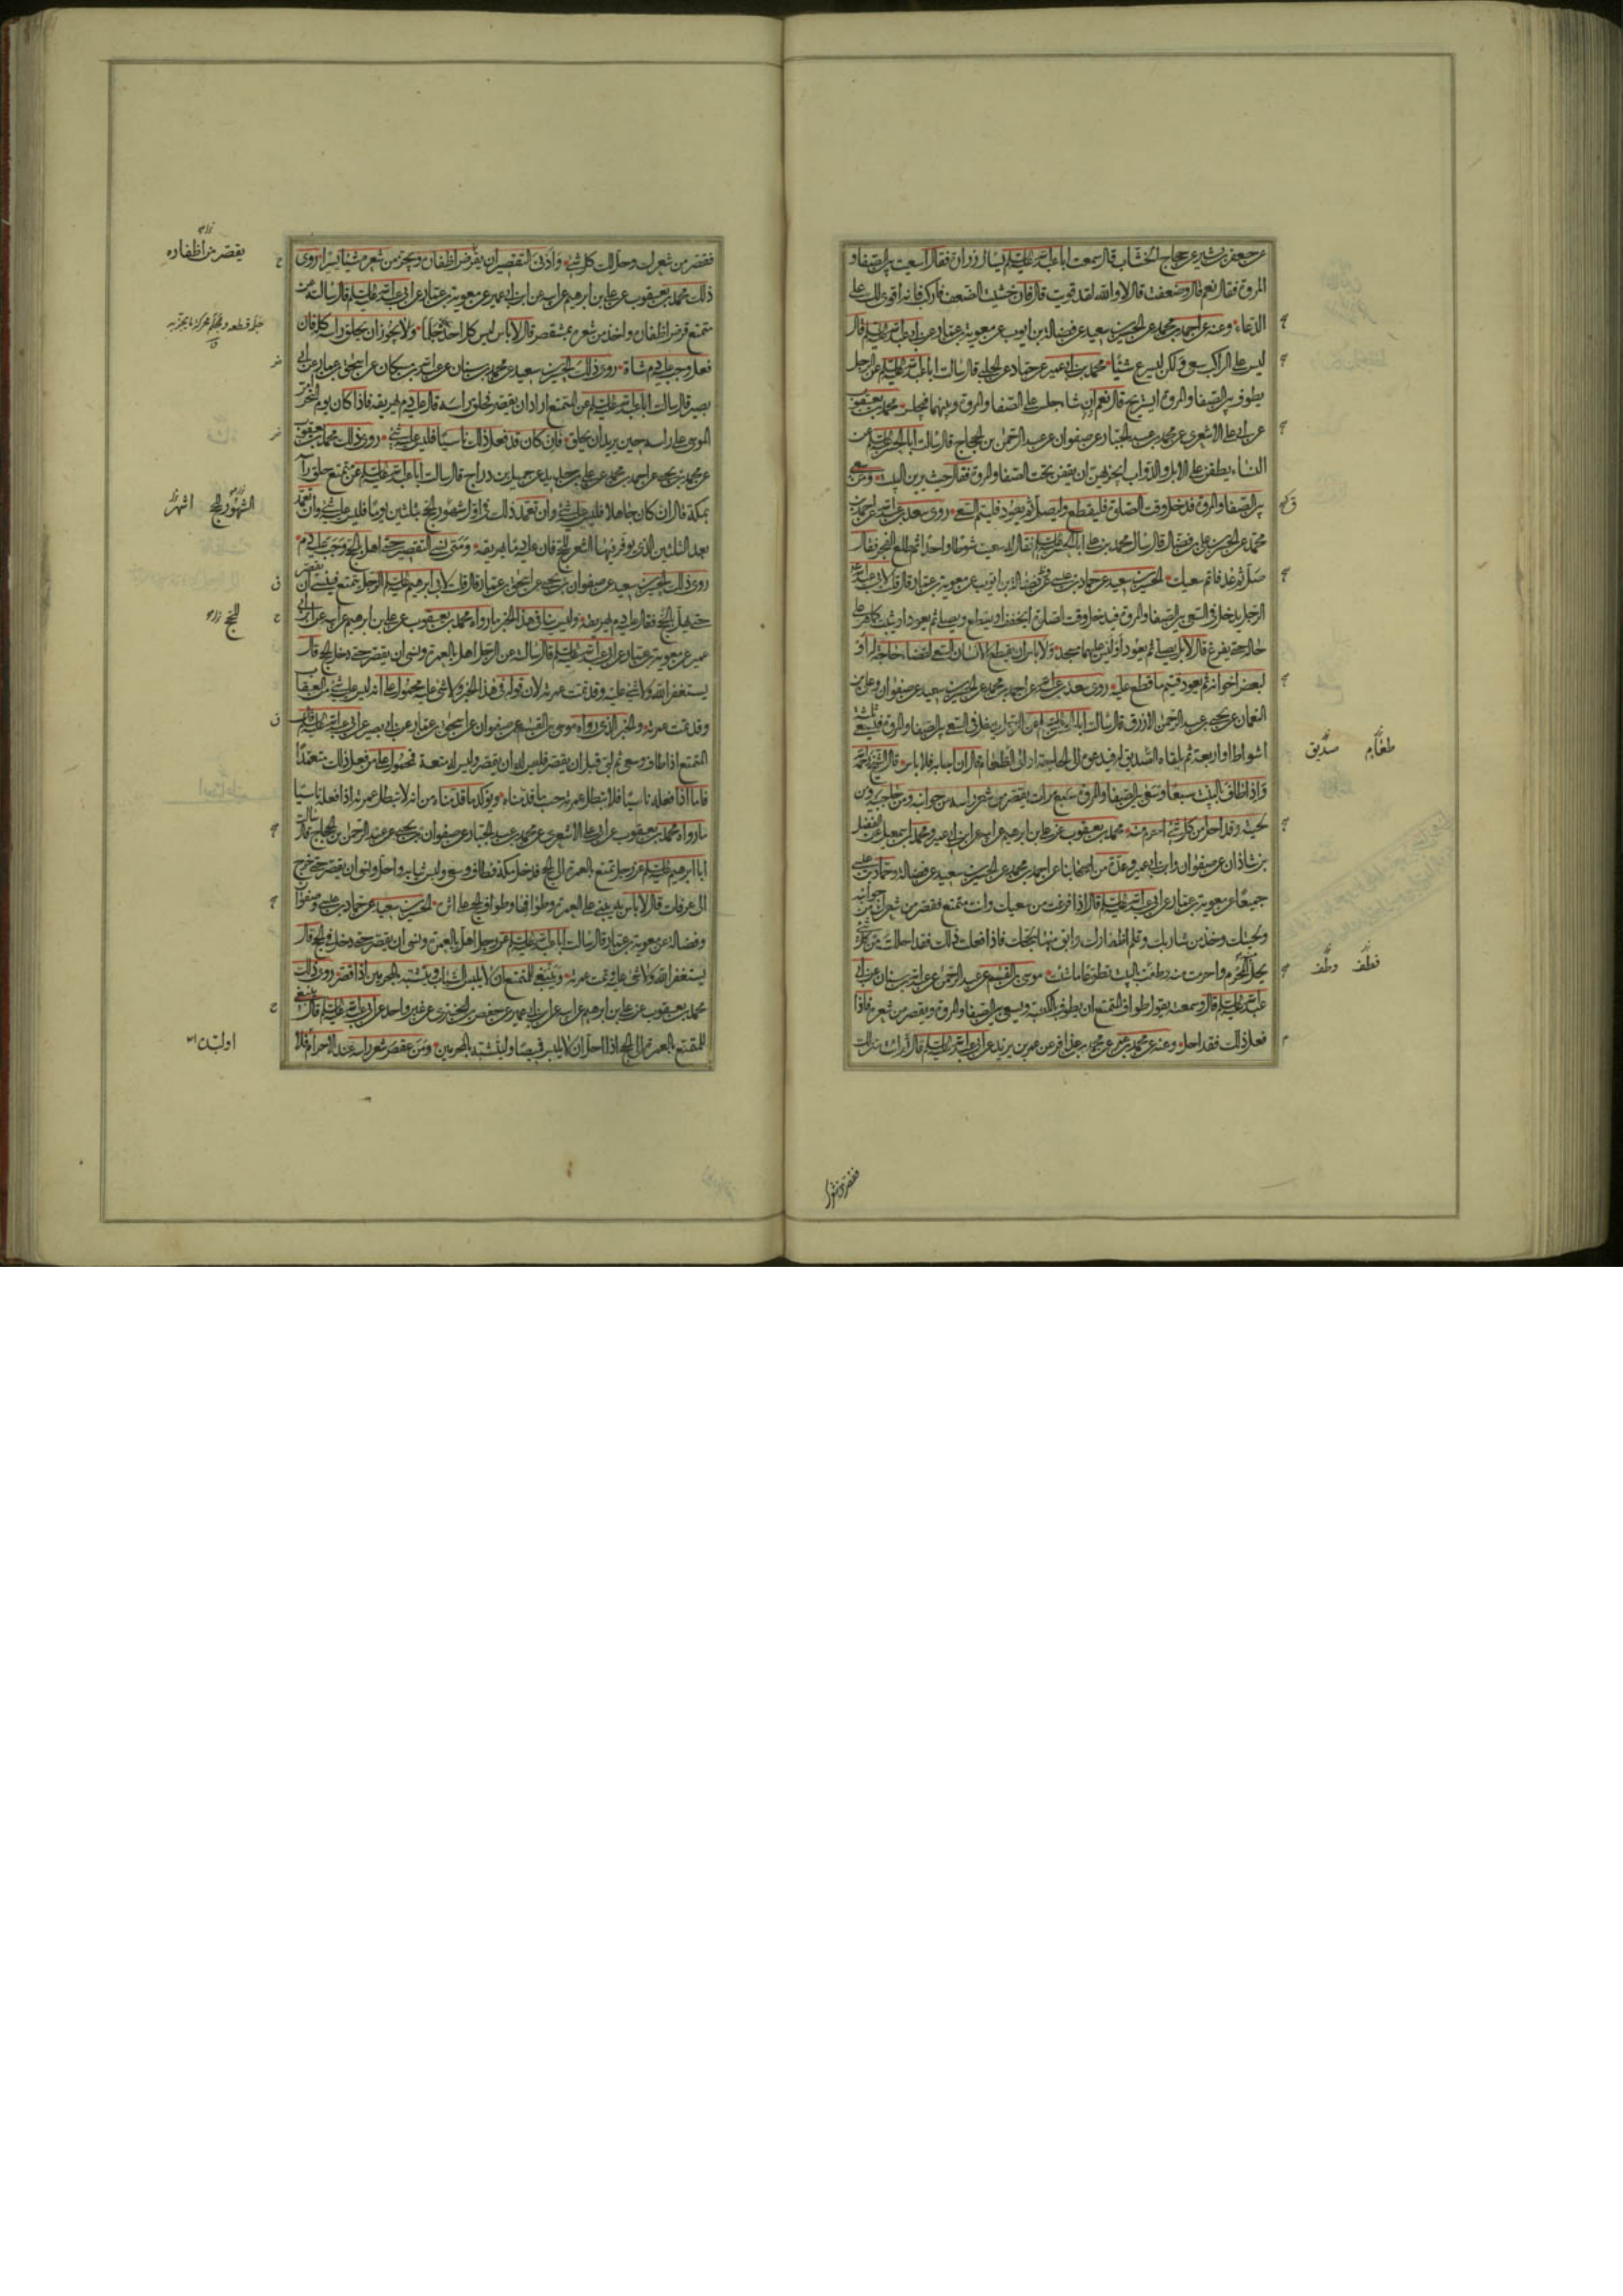 عن جعفر بن بشير عن حجاج الخشاب قال سمعت ابا عبد الله عليه السلم يسال زرارة فقال اسعيت بين الصفا و
المروة فقال نعم قال وضعفت قال لا والله لقد قويت قال فان خشيت الضعف فاركب فانه اقوى لك على
الدعاء وعنه عن احمد بن محمد عن الحسين بن سعيد عن فضالة بن ايوب عن معوية بن عمار عن ابي عبد الله عليه السلم قال
ليس على الراكب سعي ولكن ليسرع شيئا محمد بن ابي عمير عن حماد عن الحلبي قال سالت ابا عبد الله عليه السلم عن الرجل
يطوف بين الصفا والمروة ايستريح قال نعم ان شاء جلس على الصفا والمروة وبينهما فيجلس محمد بن يعقوب
عن ابي علي الاشعري عن محمد بن عبد الجبار عن صفوان عن عبد الرحمن بن الحجاج قال سالت ابا ابراهيم عليه السلم عن
النساء يطفن على الابل والدواب ايجزيهن ان يقفن تحت الصفا والمروة فقال حيث يرين البيت ومن سعى
بين الصفا والمروة فدخل وقت الصلوة فليقطع وليصل ثم يعود فليتم السعي روى سعد بن عبد الله عن احمد بن
محمد عن الحسن بن علي بن فضال قال سال محمد بن علي ابا الحسن عليه السلم فقال له سعيت شوطا واحدا ثم طلع الفجر فقال
صل ثم عد فاتم سعيك الحسين بن سعيد عن حماد بن عيسى وفضالة بن ايوب عن معوية بن عمار قال قلت لابي عبد الله
الرجل يدخل في السعي بين الصفا والمروة فيدخل وقت الصلوة ايخفف او يقطع ويصلي ثم يعود او يثبت كما هو على
حاله حتى يفرغ قال لا بل يصلي ثم يعود اوليس عليهما مسجد ولا باس ان يقطع الانسان السعي لقضاء حاجة له او
لبعض اخوانه ثم يعود فيتم ما قطع عليه روى سعد بن عبد الله عن احمد بن محمد عن الحسين بن سعيد عن صفوان وعلي بن
النعمان عن يحيى بن عبد الرحمن الازرق قال سالت ابا الحسن عليه السلم عن الرجل يدخل في السعي بين الصفا والمروة فيسعى ثلثة
اشواط او اربعة ثم يلقاه الصديق له فيدعوه الى الحاجة او الى الطعام قال ان اجابه فلا باس قال الشيخ رحمه الله
واذا طاف بالبيت سبعا وسعى بين الصفا والمروة سبع مرات يقصر من شعر راسه من جوانبه ومن حاجبيه ومن
لحيته وقد احل من كل شيء احرم منه محمد بن يعقوب عن علي بن ابرهيم عن ابيه عن ابن ابي عمير ومحمد بن اسمعيل عن الفضل
بن شاذان عن صفوان وابن ابي عمير وعدة من اصحابنا عن احمد بن محمد عن الحسين بن سعيد عن فضالة وحماد بن عيسى
جميعا عن معوية بن عمار عن ابي عبد الله عليه السلم قال اذا فرغت من سعيك وانت متمتع فقصر من شعرك من جوانبه
ولحيتك وخذ من شاربك وقلم اظفارك وابق منها لحجك فاذا فعلت ذلك فقد احللت من كل شيء
يحل منه المحرم واحرمت منه فطف بالبيت تطوعا ما شئت موسى بن القسم عن عبد الرحمن عن عبد الله بن سنان عن ابي
عبد الله عليه السلم قال سمعته يقول طواف المتمتع ان يطوف بالكعبة ويسعى بين الصفا والمروة ويقصر من شعره فاذا
فعل ذلك فقد احل وعنه عن محمد بن عمر عن محمد بن عذافر عن عمر بن يزيد عن ابي عبد الله عليه السلم قال
طعام صديق
فطف وطف
فقصر من شعرك
فقصر من شعرك وحل لك كل شيء وادنى التقصير ان يقرض اظفاره ويجز من شعره شيئا يسيرا روى
ذلك محمد بن يعقوب عن علي بن ابرهيم عن ابيه عن ابن ابي عمير عن معوية بن عمار عن ابي عبد الله عليه السلم قال سالته عن
متمتع قرض اظفاره واخذ من شعره بمشقص قال لا باس ليس كل احد يجد جلما ولا يجوز ان يحلق راسه كله فان
فعل وجب عليه دم شاة روى ذلك الحسين بن سعيد عن محمد بن سنان عن عبد الله بن مسكان عن اسحق بن عمار عن ابي
بصير قال سالت ابا عبد الله عليه السلم عن المتمتع اراد ان يقصر فحلق راسه قال عليه دم يهريقه فاذا كان يوم النحر امر
الموسى على راسه حين يريد ان يحلق فان كان قد فعل ذلك ناسيا فليس عليه شيء روى ذلك محمد بن يعقوب
عن محمد بن يحيى عن احمد بن محمد عن علي بن حديد عن جميل بن دراج قال سالت ابا عبد الله عليه السلم عن متمتع حلق راسه
بمكة قال ان كان جاهلا فليس عليه شيء وان تعمد ذلك في اول شهور الحج بثلثين يوما فليس عليه شيء وان تعمد
بعد الثلثين الذي يوفر فيها الشعر للحج فان عليه دما يهريقه ومتى نسي التقصير حتى اهل بالحج وجب عليه دم
روى ذلك الحسين بن سعيد عن صفوان بن يحيى عن اسحق بن عمار قال قلت لابي ابرهيم عليه السلم الرجل يتمتع فينسى ان يقصر
حتى يهل بالحج فقال عليه دم يهريقه وليس ينافي هذا الخبر ما رواه محمد بن يعقوب عن علي بن ابرهيم عن ابيه عن ابن ابي
عمير عن معوية بن عمار عن ابي عبد الله عليه السلم قال سالته عن الرجل اهل بالعمرة ونسي ان يقصر حتى دخل في الحج قال
يستغفر الله ولا شيء عليه وقد تمت عمرته لان قوله في هذا الخبر ولا شيء عليه محمول على انه ليس عليه شيء من العقاب
وقد تمت عمرته والخبر الذي رواه موسى بن القسم عن صفوان عن اسحق بن عمار عن ابي بصير عن ابي عبد الله عليه السلم قال
المتمتع اذا طاف وسعى ثم لبى قبل ان يقصر فليس له ان يقصر وليس له متعة فمحمول على من فعل ذلك متعمدا
فاما اذا فعله ناسيا فلا تبطل عمرته حسب ما قدمناه ويؤكد ما قدمناه من انه لا تبطل عمرته اذا فعله ناسيا
ما رواه محمد بن يعقوب عن ابي علي الاشعري عن محمد بن عبد الجبار عن صفوان بن يحيى عن عبد الرحمن بن الحجاج قال سالت
ابا ابرهيم عليه السلم عن رجل تمتع بالعمرة الى الحج فدخل مكة فطاف وسعى ولبس ثيابه واحل ونسي ان يقصر حتى خرج
الى عرفات قال لا باس به يبني على العمرة وطوافها وطواف الحج على اثره الحسين بن سعيد عن حماد بن عيسى وصفوان
وفضالة عن معوية بن عمار قال سالت ابا عبد الله عليه السلم عن رجل اهل بالعمرة ونسي ان يقصر حتى دخل في الحج قال
يستغفر الله ولا شيء عليه وتمت عمرته وينبغي للمتمتع ان لا يلبس الثياب ويتشبه بالمحرمين اذا قصر روى ذلك
محمد بن يعقوب عن علي بن ابرهيم عن ابيه عن ابن ابي عمير عن حفص بن البختري عن غير واحد عن ابي عبد الله عليه السلم قال ينبغي
للمتمتع بالعمرة الى الحج اذا احل ان لا يلبس قميصا وليتشبه بالمحرمين ومن عقص شعر راسه عند الاحرام فلا
يقصر من اظفاره
الشهور للحج اشهر
للحج